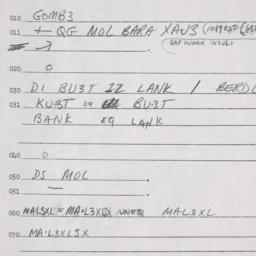 010 GOMB3
011 + QG MOL BARA XAV3
GAP HUMAN INSULT
020 0
030 DI BU3T ZZ LANK / BERD
031 KU3T EQ BU3T
BANK EQ LANK
040 0
050 DS MOL
051 —
060 MAL3XL = MA·L3XL UNEQ MAL3XL
070 MA·L3XL3X